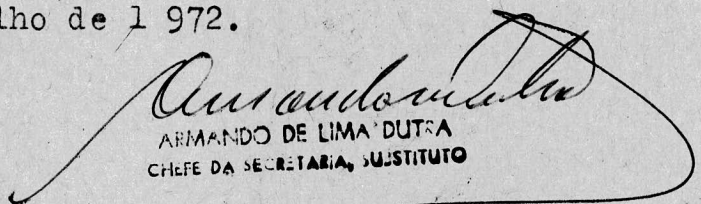 lho de 1 972.
ARMANDO DE LIMA DUTRA
CHEFE DA SECRETARIA, SUBSTITUTO